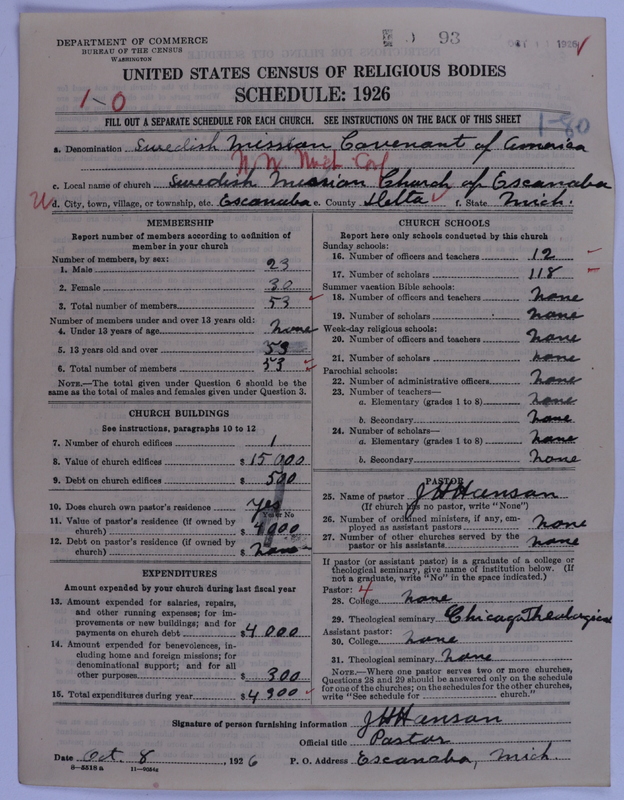 DEPARTMENT OF COMMERCE
BUREAU OF THE CENSUS
WASHINGTON
93
1926
UNITED STATES CENSUS OF RELIGIOUS BODIES
SCHEDULE: 1926
1-0
FILL OUT A SEPARATE SCHEDULE FOR EACH CHURCH. SEE INSTRUCTIONS ON THE BACK OF THIS SHEET
1-80
a. Denomination Swedish Mission Covenant of America
c. Local name of church Swedish Mission Church of Escanaba
d. City, town, village, or township, etc. Escanaba e. County Delta f. State Mich.
MEMBERSHIP
Report number of members according to definition of member in your church
Number of members, by sex:
1. Male 23
2. Female 30
3. Total number of members 53
Number of members under and over 13 years old:
4. Under 13 years of age None
5. 13 years old and over 53
6. Total number of members 53
NOTE.—The total given under Question 6 should be the same as the total of males and females given under Question 3.
CHURCH BUILDINGS
See instructions, paragraphs 10 to 12
7. Number of church edifices 1
8. Value of church edifices $15000
9. Debt on church edifices $500
10. Does church own pastor's residence Yes
Yes or No
11. Value of pastor's residence (if owned by church) $4000
12. Debt on pastor's residence (if owned by church) $None
EXPENDITURES
Amount expended by your church during last fiscal year
13. Amount expended for salaries, repairs, and other running expenses; for improvements or new buildings; and for payments on church debt $4000
14. Amount expended for benevolences, including home and foreign missions; for denominational support; and for all other purposes $300
15. Total expenditures during year $4300
CHURCH SCHOOLS
Report here only schools conducted by this church
Sunday schools:
16. Number of officers and teachers 12
17. Number of scholars 118
Summer vacation Bible schools:
18. Number of officers and teachers None
19. Number of scholars None
Week-day religious schools:
20. Number of officers and teachers None
21. Number of scholars None
Parochial schools:
22. Number of administrative officers None
23. Number of teachers—
a. Elementary (grades 1 to 8) None
b. Secondary None
24. Number of scholars—
a. Elementary (grades 1 to 8) None
b. Secondary None
PASTOR
25. Name of pastor J H Hanson
(If church has no pastor, write "None")
26. Number of ordained ministers, if any, employed as assistant pastors None
27. Number of other churches served by the pastor or his assistants None
If pastor (or assistant pastor) is a graduate of a college or theological seminary, give name of institution below. (If not a graduate, write "No" in the space indicated.)
Pastor: 4
28. College None
29. Theological seminary Chicago Theological
Assistant pastor:
30. College None
31. Theological seminary None
NOTE.—Where one pastor serves two or more churches, Questions 28 and 29 should be answered only on the schedule for one of the churches; on the schedules for the other churches, write "See schedule for church."
Signature of person furnishing information J H Hanson
Official title Pastor
Date Oct. 8, 1926 P. O. Address Escanaba, Mich.
8-5518 a 11-9054a